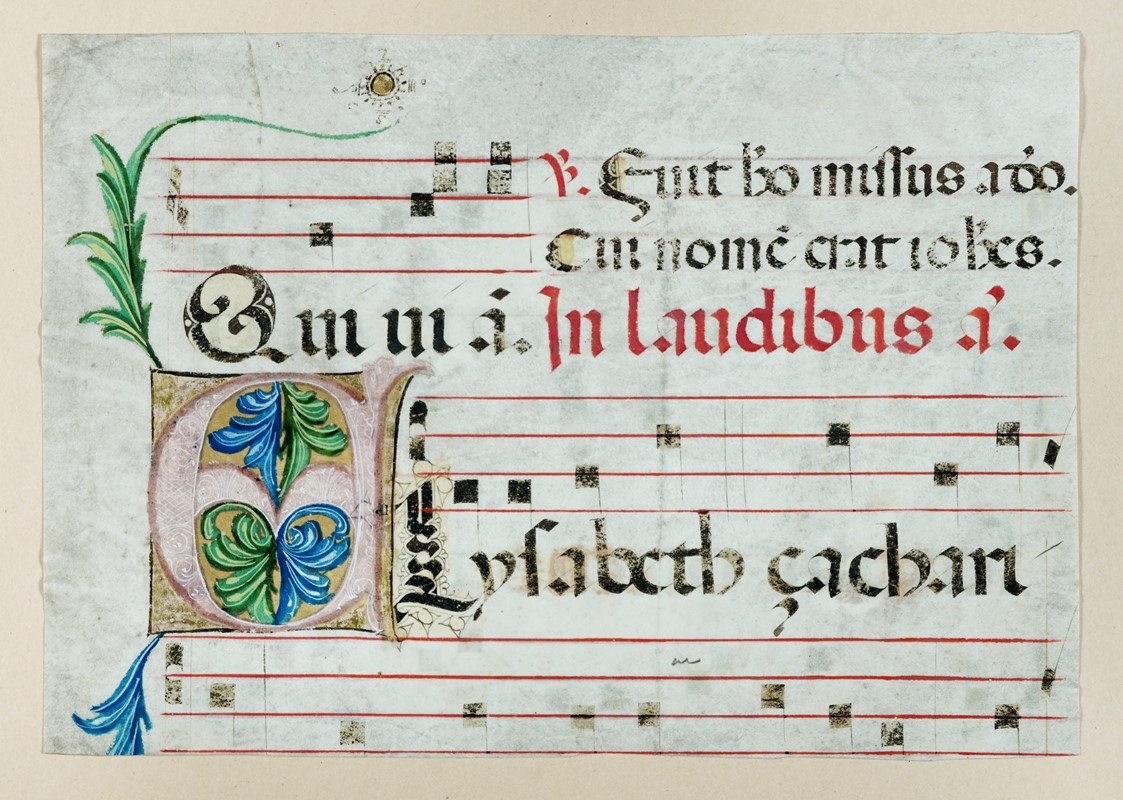 ℣. Fuit ho missus a do.
Cui nomē erat iohes.
In laudibus a.
Elysabeth çachari